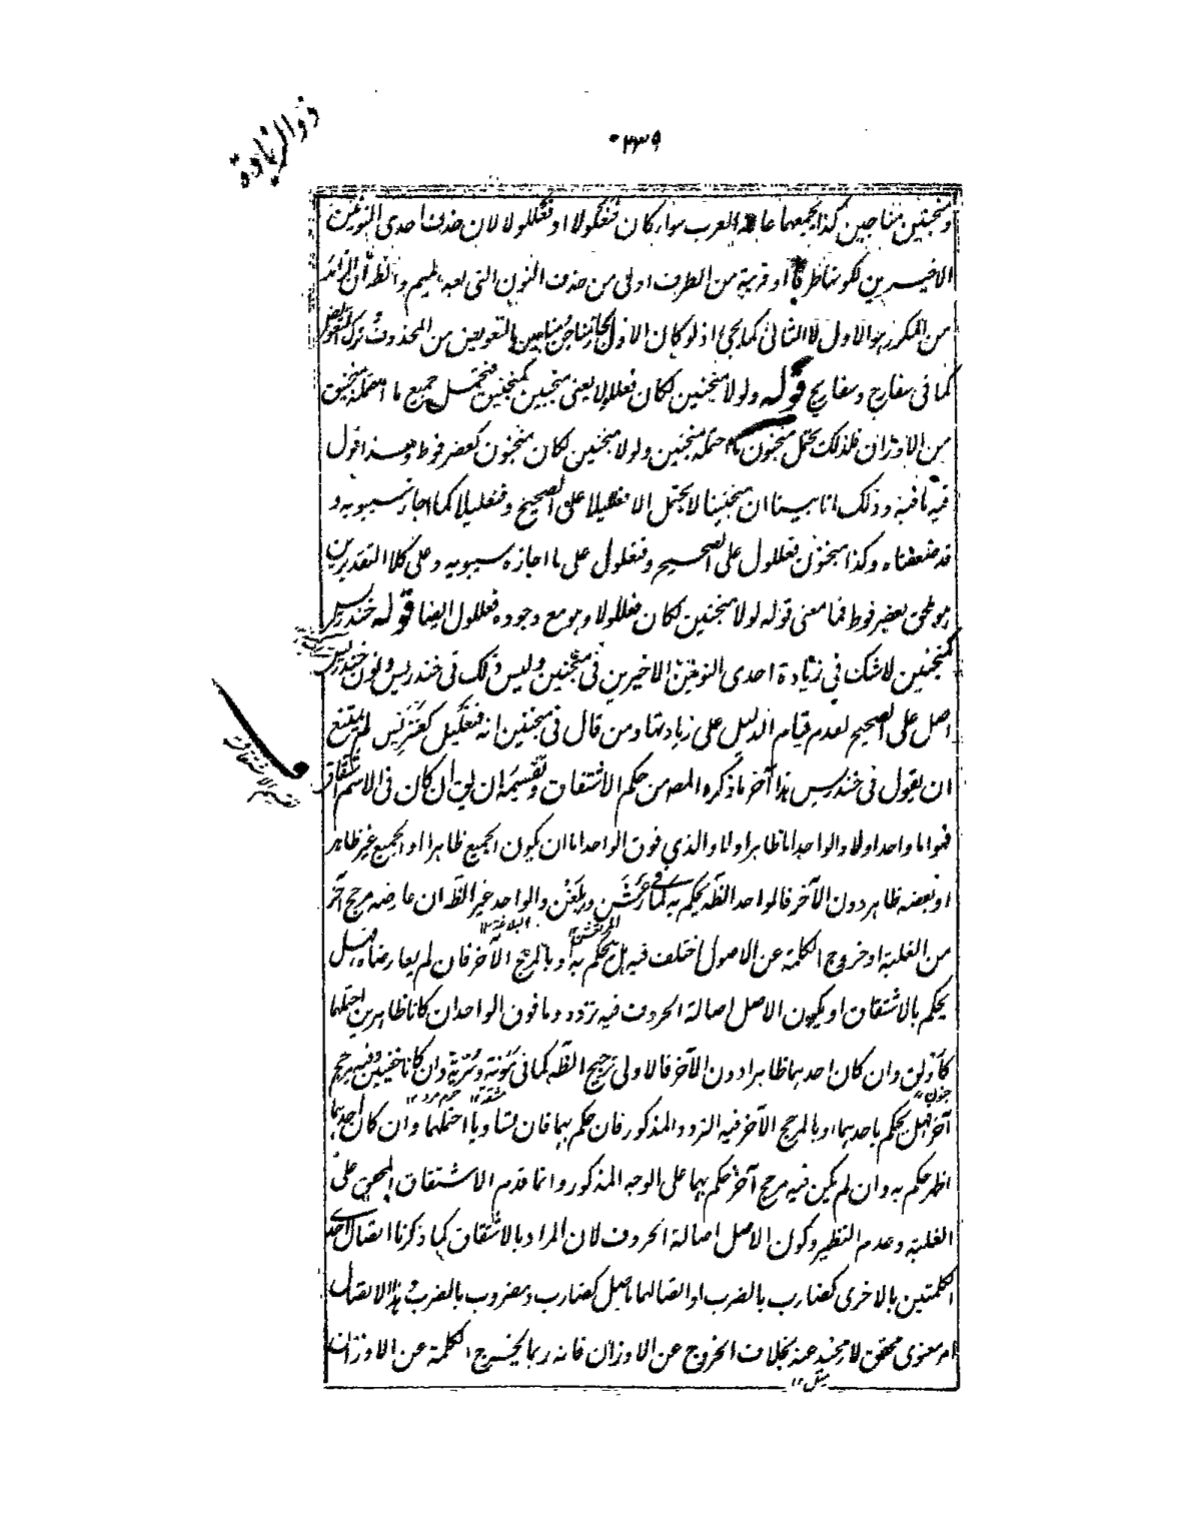 ذو الزيادة
٢٣٩
ومنجنين مناجين كذا يجمعها عامة العرب سواء كان فنعلولا او فعللولا لان حذف احدى النونين
الاخيرين لكونها طرفا او قريبة من الطرف اولى من حذف النون التى بعد الميم والظ ان الزائد
من المكرر هو الاول لا الثانى كما يجئ اذ لو كان الاول لجاز مناجن ومناجين بالتعويض من المحذوف وترك التعويض
كما فى سفارج وسفاريج قوله ولولا منجنين لكان فعللولا يعنى منجنين كمنجنيق فيحتمل جميع ما احتمله منجنيق
من الاوزان فلذلك يحتمل منجنون ما احتمله منجنين ولولا منجنين لكان منجنون كعضرفوط وهذا قول
فيه ما فيه وذلك انا بينا ان منجنينا لا يحتمل الا فعلليلا على الصحيح وفنعليلا كما اجاز سيبويه و
قد ضعفناه وكذا منجنون فعللول على الصحيح وفنعلول على ما اجازه سيبويه وعلى كلا التقديرين
هو ملحق بعضرفوط فما معنى قوله لولا منجنين لكان فعللولا وهو مع وجوده فعللول ايضا قوله خندريس
كمنجنين لا شك فى زيادة احدى النونين الاخيرين فى منجنين وليس ذلك فى خندريس ونون خندريس
اصل على الصحيح لعدم قيام الدليل على زيادتها ومن قال فى منجنين انه فنعليل كعنتريس لم يمتنع
ان يقول فى خندريس هذا آخر ما ذكره المصـ من حكم الاشتقاق وتقسيمه ان يق ان كان فى الاسم اشتقاق
فهو اما واحد اولا والواحد اما ظاهر اولا والذي فوق الواحد اما ان يكون الجميع ظاهرا او الجميع غير ظاهر
او بعضه ظاهر دون الآخر فالواحد الظـ يحكم به كما فى رعشن وبلغن والواحد غير الظـ ان عارضه مرجح آخر
من الغلبة او خروج الكلمة عن الاصول اختلف فيه هل يحكم به او بالمرجح الآخر فان لم يعارضه هل
يحكم بالاشتقاق او يكون الاصل اصالة الحروف فيه تردد وما فوق الواحد ان كانا ظاهرين احتملهما
كأولق وان كان احدهما ظاهرا دون الآخر فالاولى ترجيح الظـ كما فى مؤنة وسرية وان كانا خفيين وفيه مرجح
آخر فهل يحكم باحدهما او بالمرجح الآخر فيه التردد المذكور فان حكم بهما فان تساويا احتملهما وان كان احدهما
اظهر حكم به وان لم يكن فيه مرجح آخر حكم بهما على الوجه المذكور وانما قدم الاشتقاق المحقق على
الغلبة وعدم النظير وكون الاصل اصالة الحروف لان المراد بالاشتقاق كما ذكرنا اتصال احدى
الكلمتين بالاخرى كضارب بالضرب او اتصالهما باصل كضارب ومضروب بالضرب وهذا الاتصال
امر معنوى محقق لا محيد عنه بخلاف الخروج عن الاوزان فانه ربما يخرج الكلمة عن الاوزان